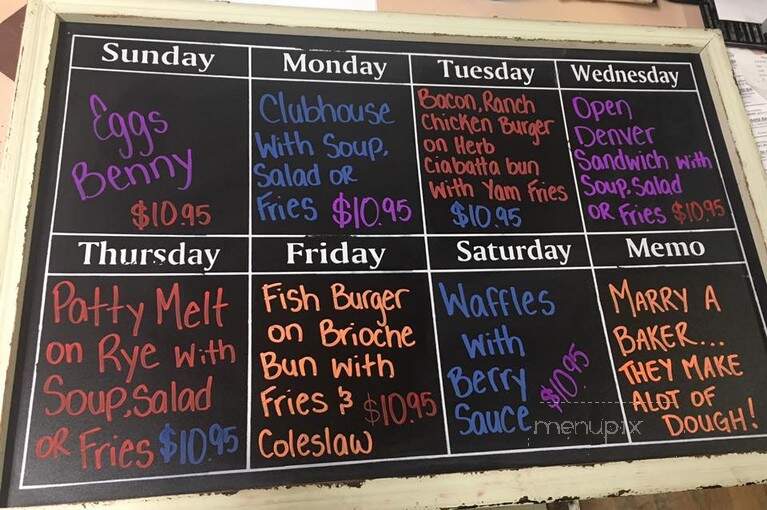 Sunday
Eggs
Benny
$10.95
Monday
Clubhouse
With Soup,
Salad OR
Fries $10.95
Tuesday
Bacon, Ranch
Chicken Burger
on Herb
Ciabatta bun
with Yam Fries
$10.95
Wednesday
Open
Denver
Sandwich with
Soup, Salad
OR Fries $10.95
Thursday
Patty Melt
on Rye With
Soup, Salad
OR Fries $10.95
Friday
Fish Burger
on Brioche
Bun With
Fries & $10.95
Coleslaw
Saturday
Waffles
with
Berry
Sauce $10.95
Memo
MARRY A
BAKER...
THEY MAKE
ALOT OF
DOUGH!
menupix